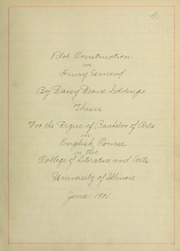 Plot Construction
in
Henry Esmond
By Daisy Deane Iddings
Thesis
For the Degree of Bachelor of Arts
in
English Course
in the
College of Literature and Arts
University of Illinois
June 1901